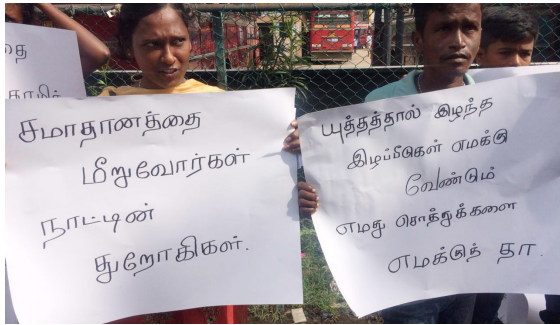 தை
சமாதானத்தை
மீறுவோர்கள்
நாட்டின்
துறோகிகள்.
யுத்தத்தால் இழந்த
இழப்பீடுகள் எமக்கு
வேண்டும்
எமது சொத்துக்களை
எமக்குத் தா.